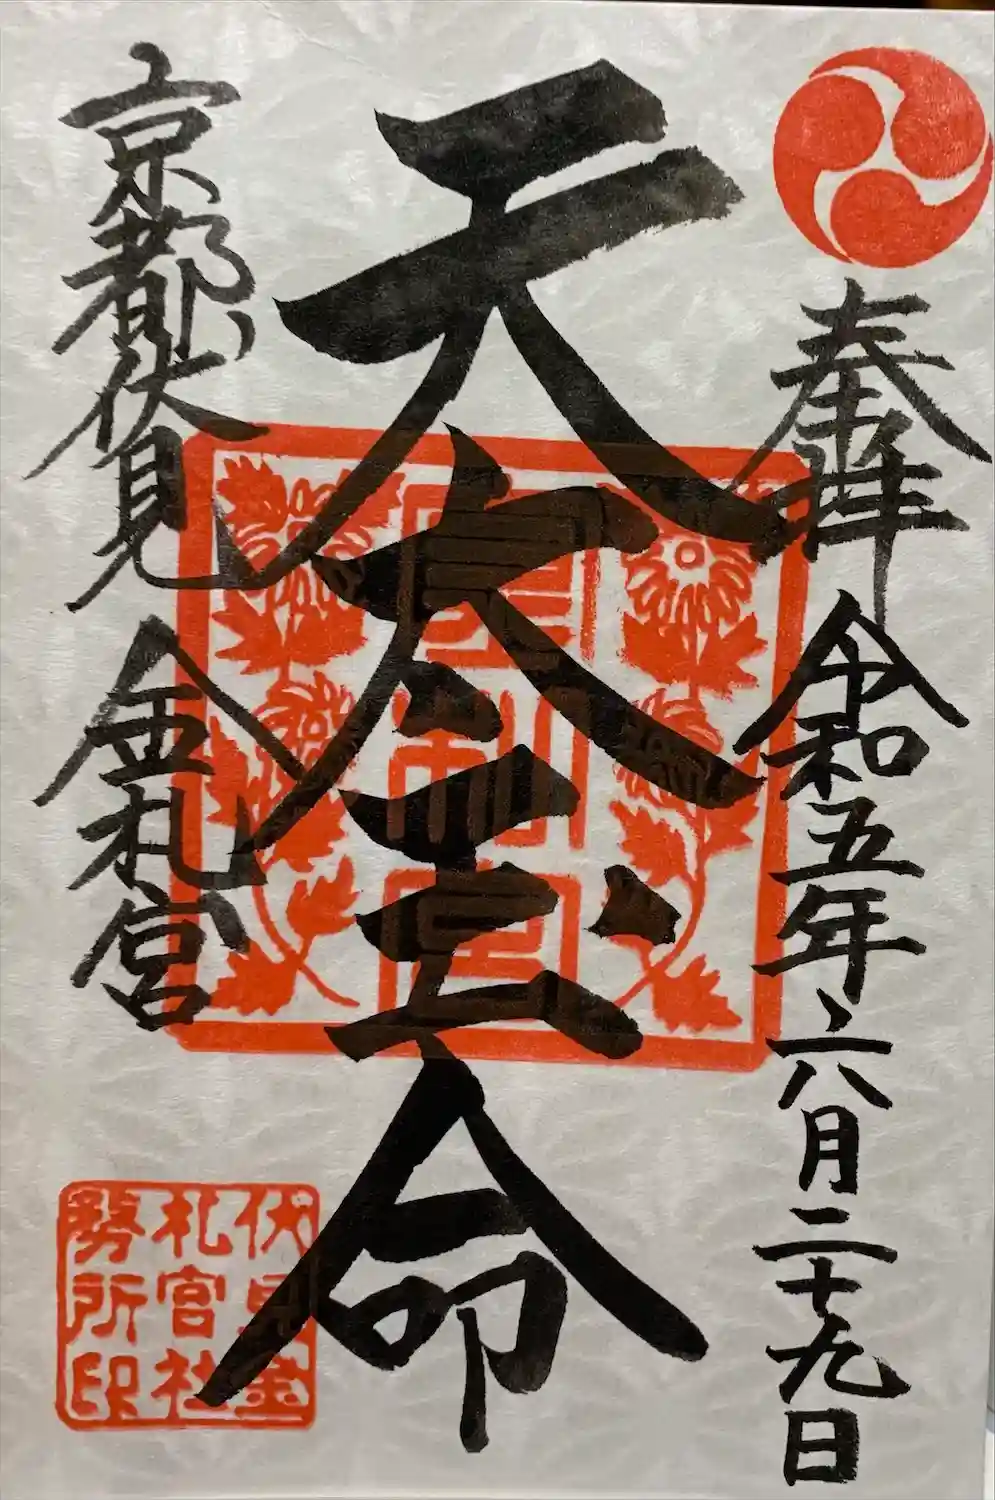 奉拝
令和五年六月二十九日
天太玉命
京都伏見
金札宮
金札宮
伏見金
札宮社
務所印